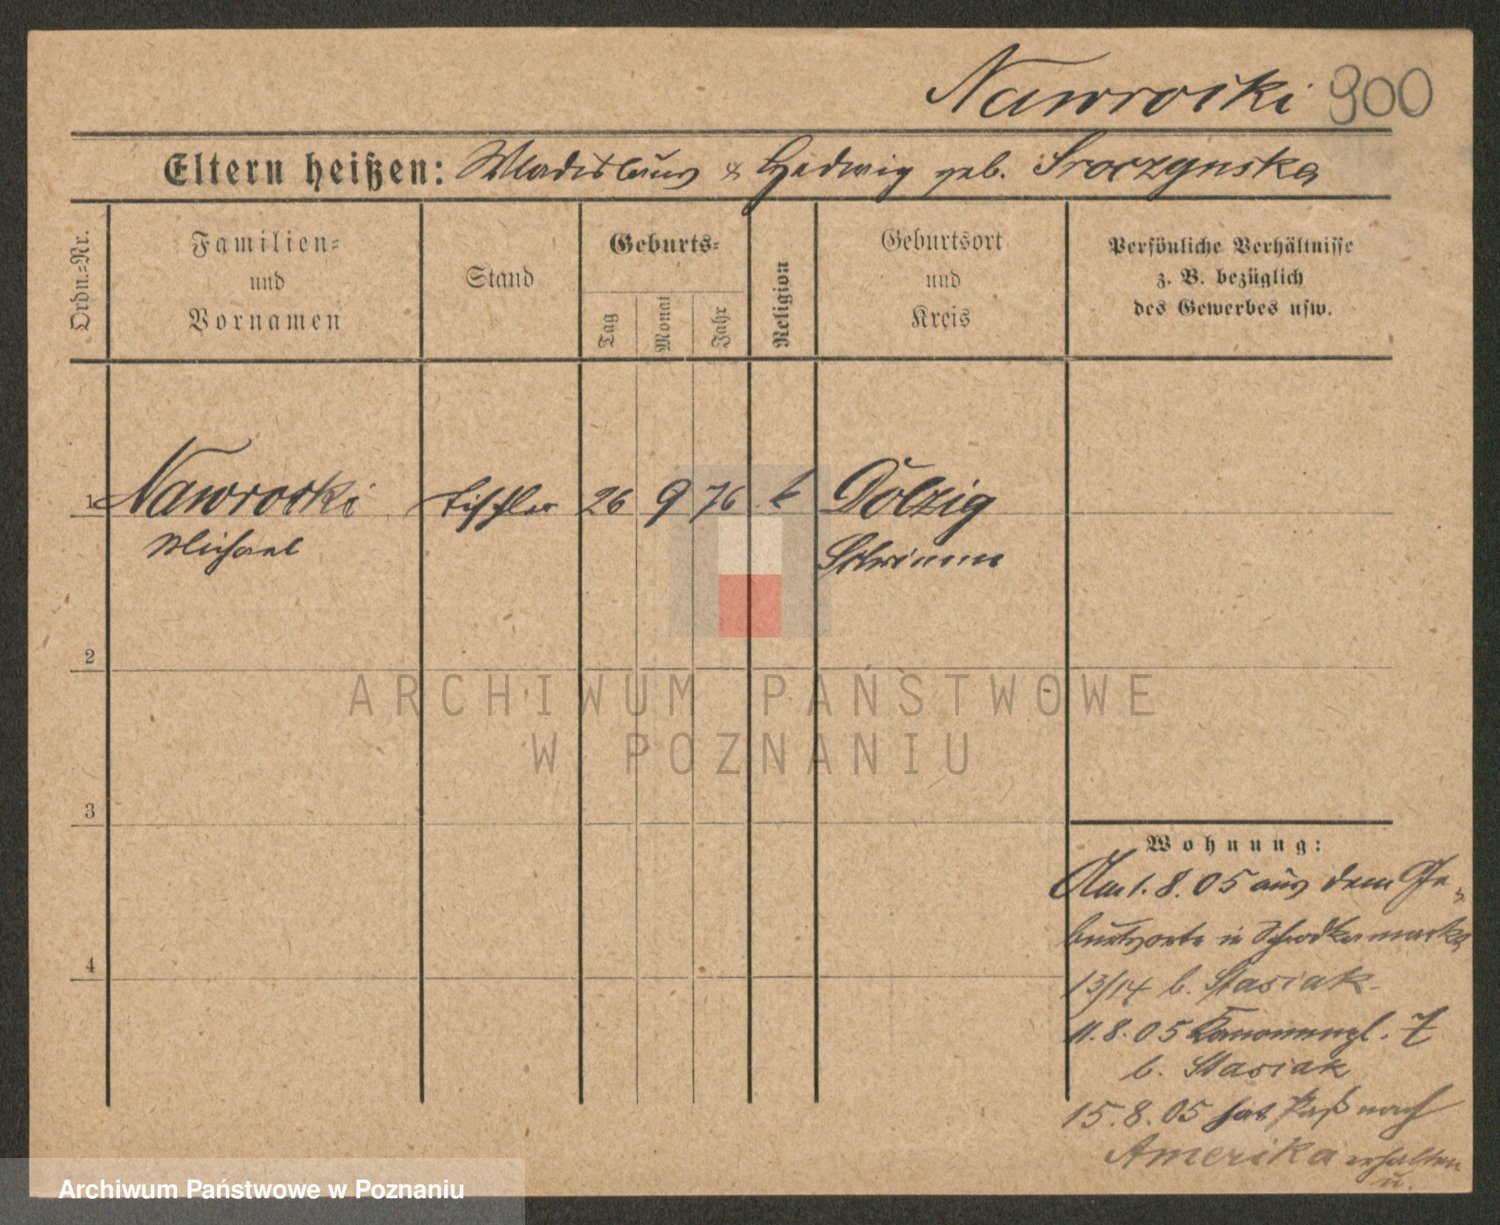 Nawrocki 900
Eltern heißen: Wladislaus & Hedwig geb. Sroczynska
Ordn.=Nr.
Familien=
und
Vornamen
Stand
Geburts=
Tag
Monat
Jahr
Religion
Geburtsort
und
Kreis
Persönliche Verhältnisse
z. B. bezüglich
des Gewerbes usw.
1 Nawrocki Tischler 26 9 76 k Dolzig
Michael Schrimm
2
ARCHIWUM PAŃSTWOWE
W POZNANIU
3
Wohnung:
Am 1. 8. 05 aus dem Ge-
burtsorte in Schrodkamarkt
13/14 b. Stasiak
11. 8. 05 7
b. Stasiak
15. 8. 05 hat Paß nach
Amerika erhalten
4
Archiwum Państwowe w Poznaniu